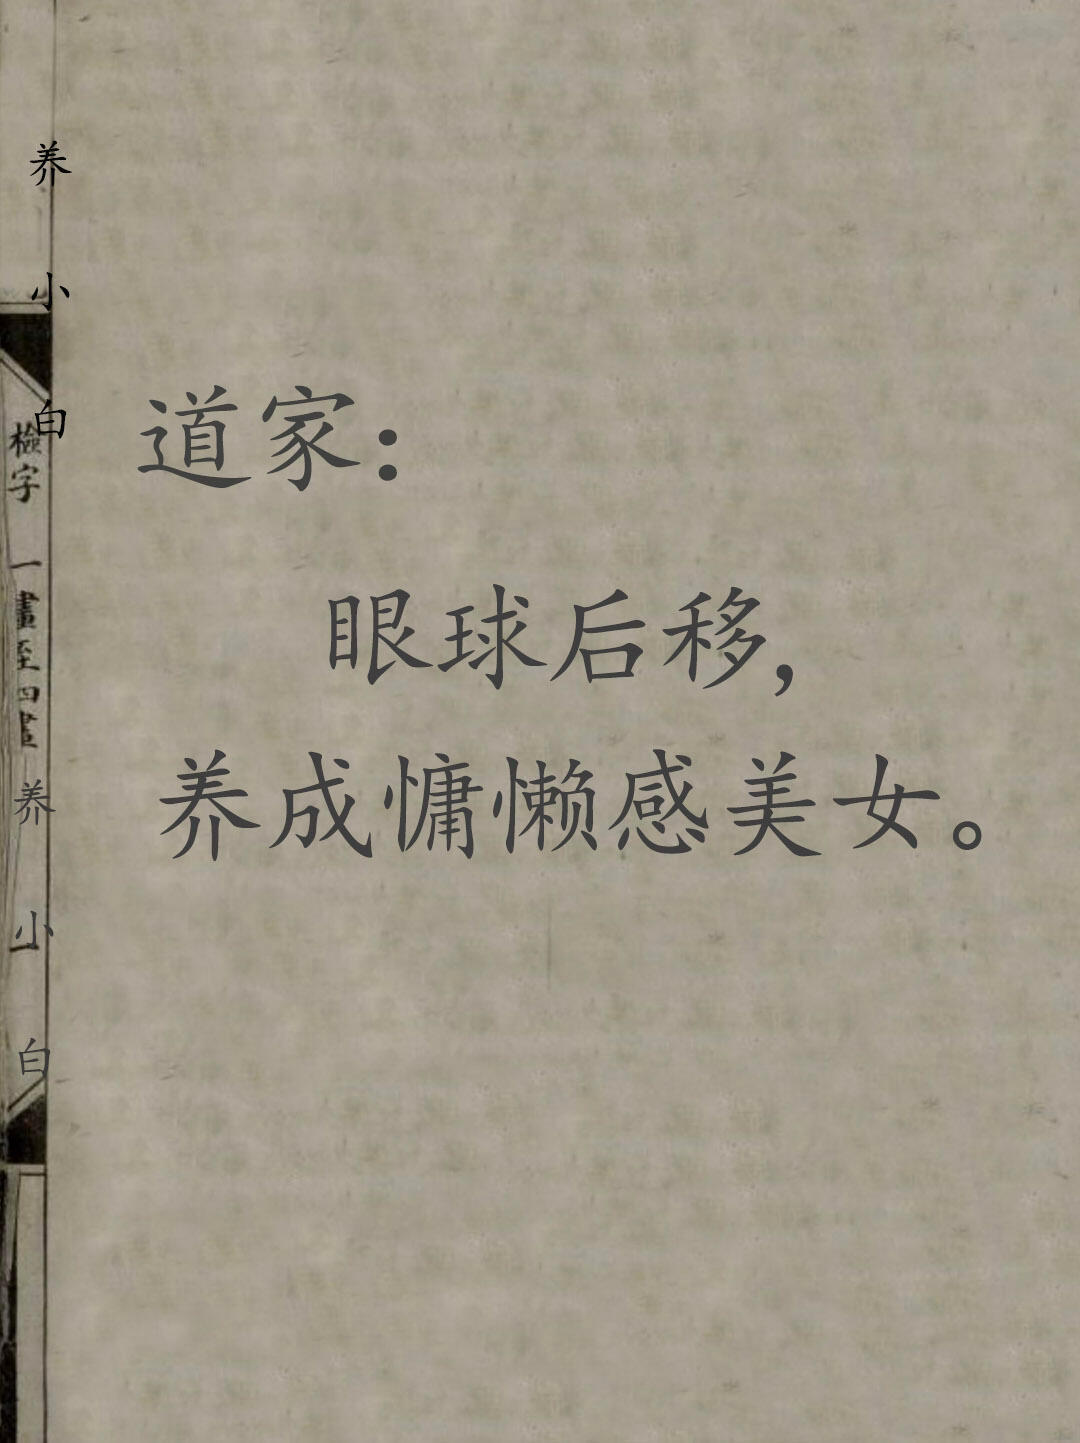 养小白
道家：
眼球后移，
养成慵懒感美女。
檢字 一畫至四畫
养小白